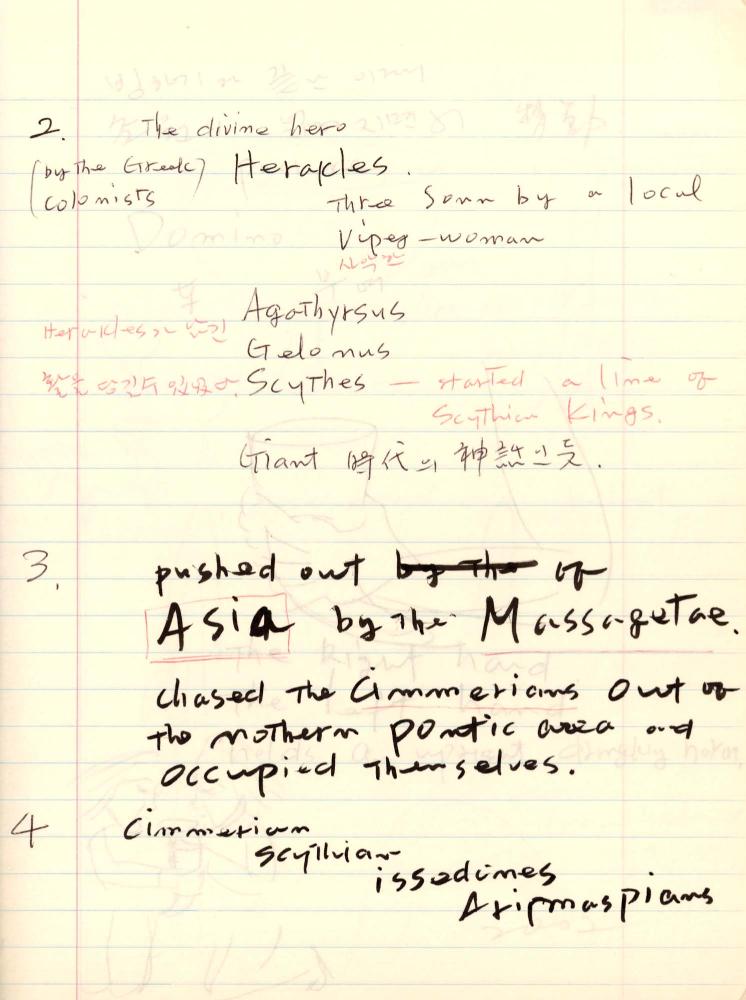 2. The divine hero
(by the Greek) Herakles.
colonists
Three Sonn by a local
Viper-woman
사악한
Agathyrsus
Herakles가 남긴
Gelonus
활을 당길 수 있었다. Scythes — started a line of
Scythian Kings.
Giant 時代의 神話인듯.
3. pushed out by the of
Asia by the Massagetae.
chased the Cimmerians out of
the nothern pontic area and
occupied themselves.
4 Cimmerian
scythian
issedones
Aripmaspians